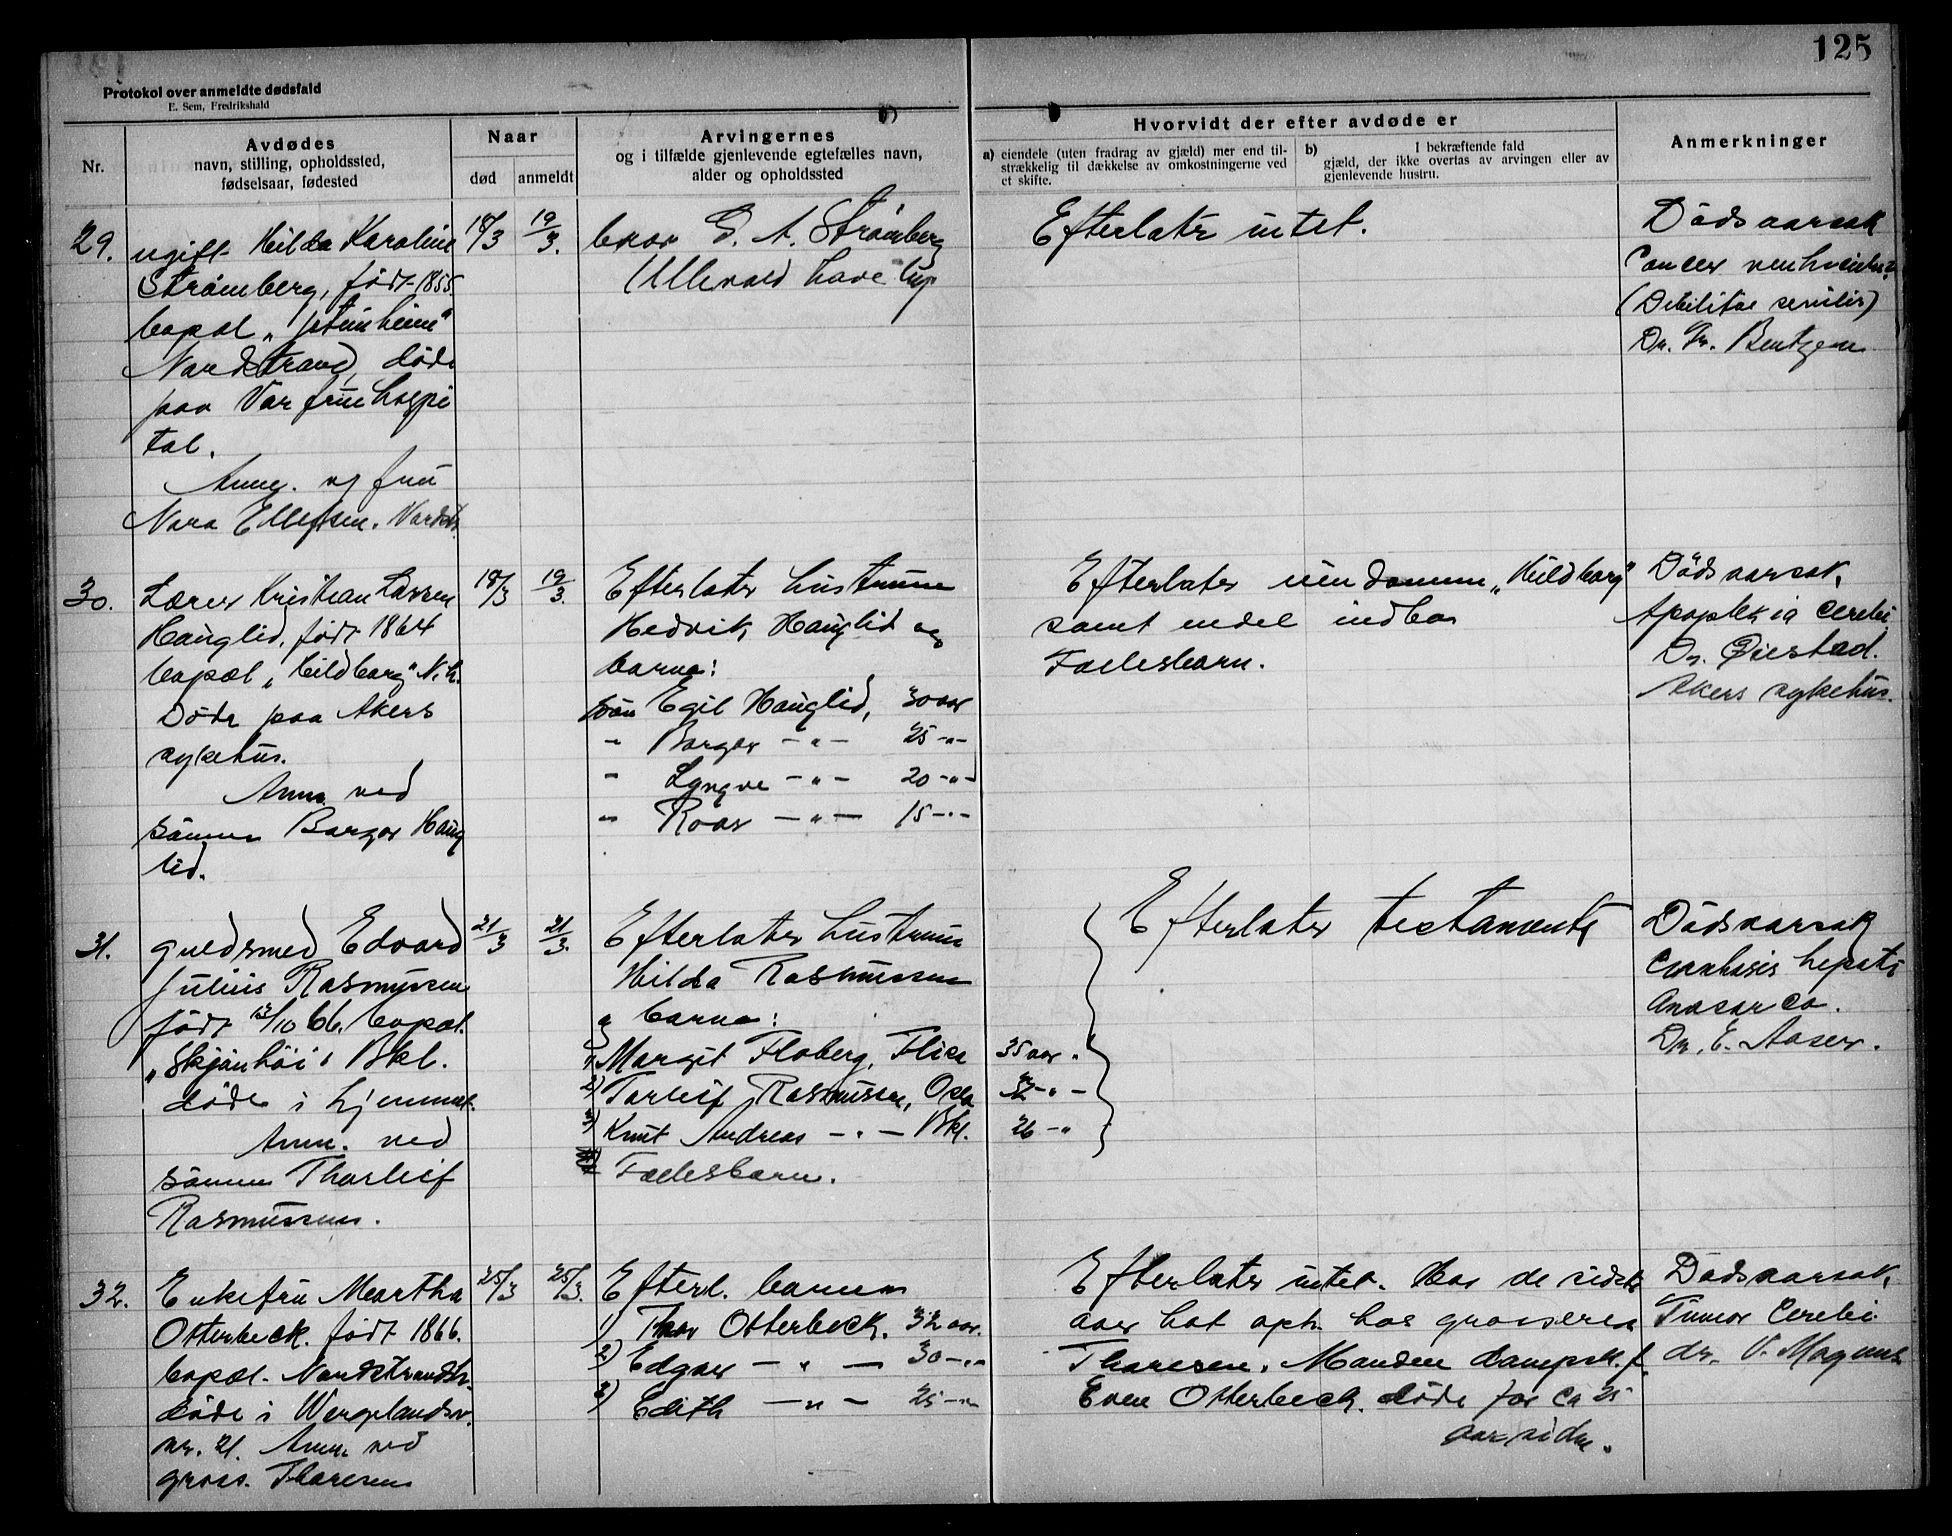 125
Protokol over anmeldte dødsfald
E. Sem, Fredrikshald
Nr.
Avdødes
navn, stilling, opholdssted,
fødselsaar, fødested
Naar
død
anmeldt
Arvingernes
og i tilfælde gjenlevende egtefælles navn,
alder og opholdssted
Hvorvidt der efter avdøde er
a) eiendele (uten fradrag av gjæld) mer end til-
strækkelig til dækkelse av omkostningerne ved
et skifte.
b) I bekræftende fald
gjæld, der ikke overtas av arvingen eller av
gjenlevende hustru.
Anmerkninger
29.
ugift Hilda Karoline
Strømberg, født 1855.
bopæl
Nordstrand, døde
paa Vor frue hospi
tal.
Anm. av fru
Nora Ellefsen. Nordstr.
18/3
19/3.
bror G. A. Strømberg
Ullevold Have by
Efterlater intet.
Dødsaarsak
Cancer
(Debilitas senilis)
Dr. Fr. Bentzen
30.
Lærer Kristian Larsen
Hauglid, født 1864
bopæl "Hildborg" N.h.
Døde paa Akers
sykehus.
Anm. ved
sønnen Borgar Haug
lid.
18/3
19/3.
Efterlater hustruen
Hedvik Hauglid og
barna:
søn Egil Hauglid, 30 aar
" Borgar — " — 25 - " -
" Yngve — " — 20 - " -
" Roar — " — 15 - " -
Efterlater eiendommen "Hildborg"
samt endel indbo
Fællesbarn.
Dødsaarsak,
Apoplexia cerebri
Dr. Øiestad.
Akers sykehus.
31.
Guldsmed Edvard
Julius Rasmussen
født 13/10 66. bopæl.
"Skjønhöi" Bkl.
døde i hjemmet.
Anm. ved
sönnen Thorleif
Rasmussen.
21/3
21/3.
Efterlater hustruen
Hilda Rasmussen
og barna:
1) Margit Floberg, Flisa 35 aar.
2) Torleif Rasmussen, Oslo
3) Knut Andreas — " — Bkl. 26 - "
Fællesbarn.
Efterlater testamente
Dødsaarsak
Cirrhosis hepatis
Anasarca.
Dr. E. Aaser.
32.
Enkefru Martha
Otterbeck. født 1866.
bopæl. Nordstrandsh.
døde i Wergelandsv.
nr. 21. Anm. ved
gross. Thoresen
25/3
25/3.
Efterl. barna
1) Thor Otterbeck. 32 aar.
2) Edgar — " — 30 - " -
3) Edith — " — 25 - " -
Efterlater intet. Har de sidste
aar hat oph. hos grosserer
Thoresen. Manden dampsk.f.
Even Otterbeck. døde for ca 25
aar siden.
Dødsaarsak,
Tumor Cerebri
dr. V. Magnus